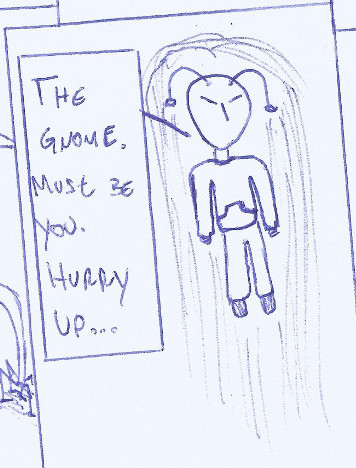 THE
GNOME.
MUST BE
YOU.
HURRY
UP...